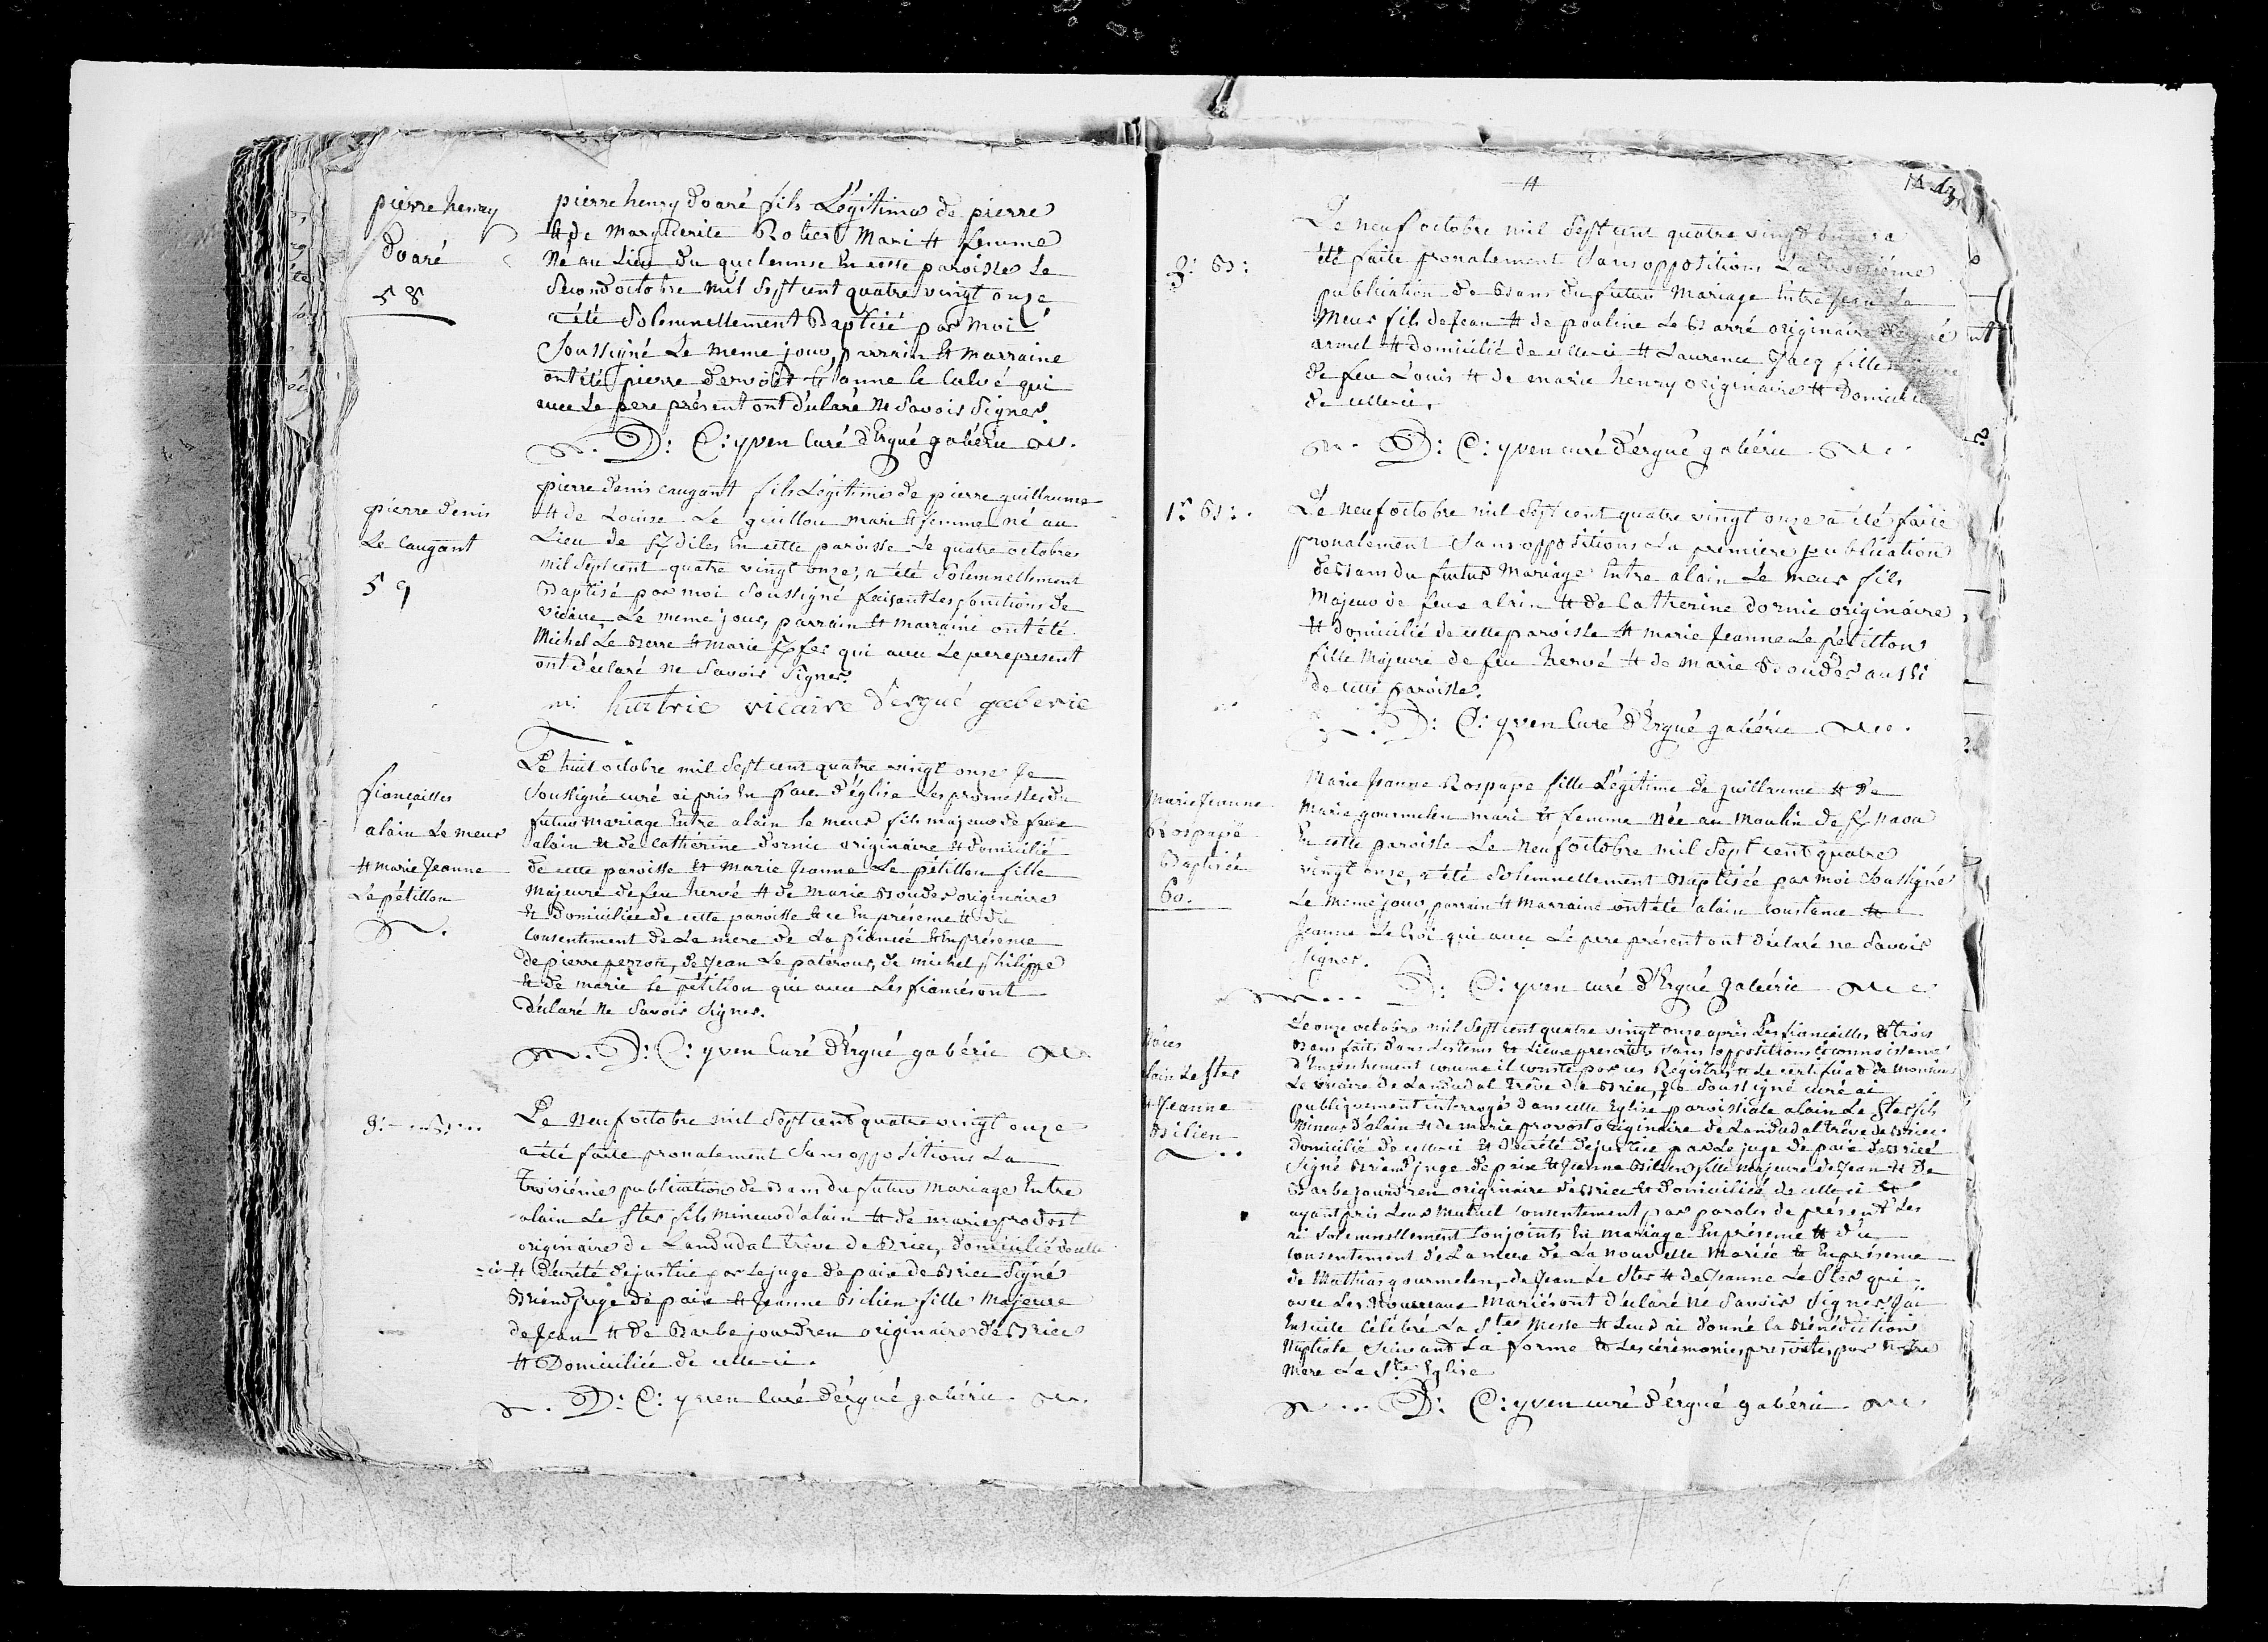 pierre henry
doaré
58
pierre henry doaré fils Légitime de pierre
et de Margueritte Robert Mari et femme
Né au Lieu du quelennec En cette paroisse Le
Second octobre mil Sept cent quatre vingt onze
a été Solemnellement Baptisé par moi
Soussigné Le meme jour, parrain et marraine
ont été pierre et anne le Calvé qui
avec Le pere présent ont déclaré Ne Savoir Signer.
D: C: yven Curé d'Ergué gabéric
pierre denis
Le Caugant
59
pierre denis caugant fils Légitime de pierre guillaume
et de Louise Le guillou mari et femme né au
Lieu de En cette paroisse Le quatre octobre
mil Sept cent quatre vingt onze, a été Solemnellement
Baptisé par moi Soussigné faisant Les fonctions de
vicaire Le meme jour, parrain et marraine ont été
Michel Le Berre et marie qui avec Le pere present
ont déclaré ne Savoir Signer.
vicaire d'ergué gaberic
fiançailles
alain Le meur
et marie Jeanne
Le pétillon
Le huit octobre mil Sept cent quatre vingt onze Je
Soussigné curé ai pris En face d'église Les promesses du
futur mariage Entre alain le meur fils majeur de feu
alain et de Cathérine dornic originaire et domicilié
de cette paroisse et Marie Jeanne Le pétillon fille
Majeure de feu hervé et de Marie Bouder originaire
Et Domiciliée de cette paroisse et ce En présence et du
Consentement de La mere de La fiancée et En présence
de pierre de Jean Le patérour, de michel philippe
et de marie Le pétillon qui avec Les fiancés ont
déclaré Ne Savoir Signer.
D: C: yven Curé d'Ergué gabéric
3: B:
Le Neuf octobre mil Sept cent quatre vingt onze
a été faite pronalement Sans oppositions La
Troisiéme publication de Bans du futur Mariage Entre
alain Le Ster fils Mineur d'alain et de marie provost
originaire de Landudal trêve de Briec, domicilié de celle
-ci et décrété de justice par Le juge de paix de Briec Signé
Briend juge de paix et Jeanne Bilien fille Majeure
de Jean et de Barbe jourdren originaire de Briec
et Domiciliée de celle-ci.
D: C: yven Curé d'érgué gabéric
3: B:
Le neuf octobre mil Sept cent quatre vingt onze a
été faite pronalement Sans oppositions La troisiéme
publication de Bans du futur Mariage Entre Jean Le
Meur fils de Jean et de pauline Le Barré originaire d'ergué
armel et domicilié de celle-ci et Laurence Jacq fille
de feu Louis et de marie henry originaire et Domiciliée
de celle-ci.
D: C: yven curé d'érgué gabéric
1r B:
Le Neuf octobre mil Sept cent quatre vingt onze a été faite
pronalement Sans oppositions La premiere publication
de Bans du futur Mariage Entre alain Le meur fils
Majeur de feu alain et de Catherine dornic originaire
et Domicilié de cette paroisse et marie Jeanne Le pétillon
fille Majeure de feu hervé et de Marie Bouder aussi
de cette paroisse.
D: C: yven Curé d'Ergué gabéric
Marie Jeanne
Rospape
Baptisée
60.
Marie Jeanne Rospape fille Légitime de guillaume et de
Marie gourmelen mari et femme Née au moulin de
En cette paroisse Le Neuf octobre mil Sept cent quatre
vingt onze, a été Solemnellement Baptisée par moi Soussigné
Le meme jour, parrain et Marraine ont été alain Coustance et
Jeanne Le Roi qui avec Le pere présent ont déclaré ne Savoir
Signer.
D: C: yven curé d'Ergué gabéric
Le Ster
et Jeanne
Bilien
Le onze octobre mil Sept cent quatre vingt onze après Les fiançailles et trois
Bans faits dans Les tems et Lieux prescrits Sans oppositions
d'Empechement comme il conste par ces Régistres et Le certificat de Monsieur
Le vicaire de Landudal trêve de Briec, Je Soussigné curé ai
publiquement interrogé dans cette Eglise paroissiale alain Le Ster fils
Mineur d'alain et de marie provost originaire de Landudal trêve de Briec
domicilié de celle-ci et décrété de justice par Le juge de paix de Briec
Signé Briend juge de paix et Jeanne Bilien fille Majeure de Jean et de
Barbe jourdren originaire de Briec et domiciliée de celle ci et
ayant pris Leur Mutuel Consentement par paroles de présent Les
ai Solemnellement Conjoints En mariage En présence et du
Consentement de La mere de La nouvelle Mariée et En présence
de Mathias gourmelen, de Jean Le Ster et de Jeanne Le Ster qui
avec Les Nouveaux Mariés ont déclaré Ne Savoir Signer. J'ai
Ensuite Célébré La Ste Messe et Leur ai donné la Bénédiction
Nuptiale Suivant La forme et Les cérémonies prescrites par Notre
Mere La Ste Eglise
D: C: yven curé d'érgué gabéric